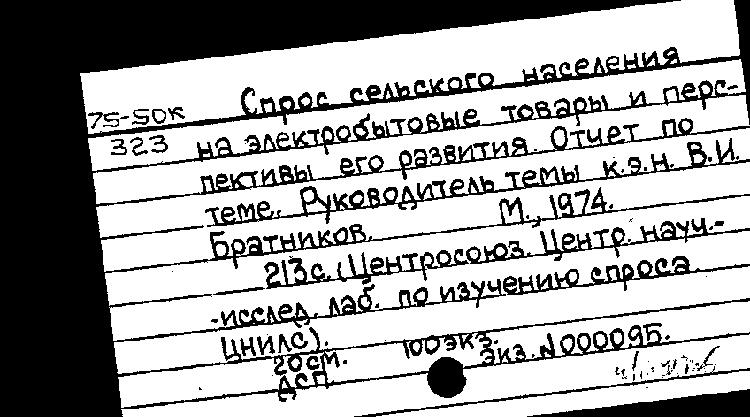 75-50к Спрос сельского населения
323 на электробытовые товары и перс-
пективы его развития. Отчет по
теме. Руководитель темы к.э.н. В.И.
Братников. М., 1974.
213с. (Центросоюз. Центр. науч.-
-исслед. лаб. по изучению спроса
ЦНИЛС).
20см. 100экз. Экз. N00009Б.
ДСП.